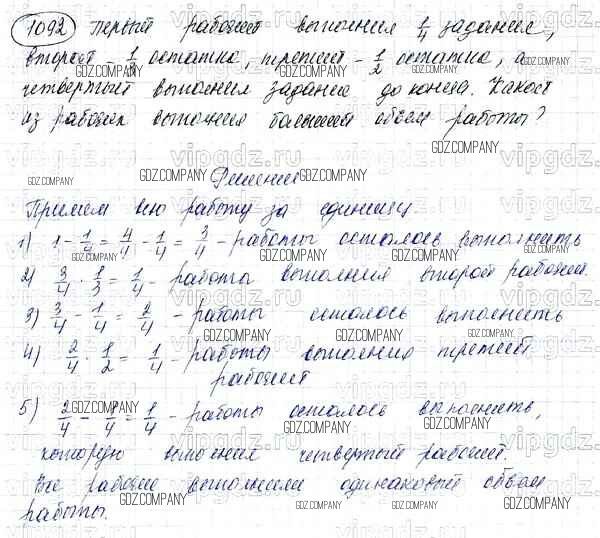 1092 Первый рабочий выполнил 1/4 задания,
второй – 1/3 остатка, третий – 1/2 остатка, а
четвертый выполнил задание до конца. Какой
из рабочих выполнил больший объем работы?
Решение
Примем всю работу за единицу.
1) 1 - 1/4 = 4/4 - 1/4 = 3/4 - работы осталось выполнить
2) 3/4 · 1/3 = 1/4 - работы выполнил второй рабочий.
3) 3/4 - 1/4 = 2/4 - работы осталось выполнить
4) 2/4 · 1/2 = 1/4 - работы выполнил третий
рабочий
5) 2/4 - 1/4 = 1/4 - работы осталось выполнить,
которую выполнил четвертый рабочий.
Все рабочие выполнили одинаковый объем
работы.
GDZ.COMPANY
vipgdz.ru